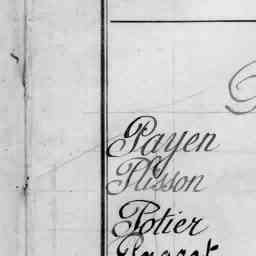 P
Payen
Plisson
Potier